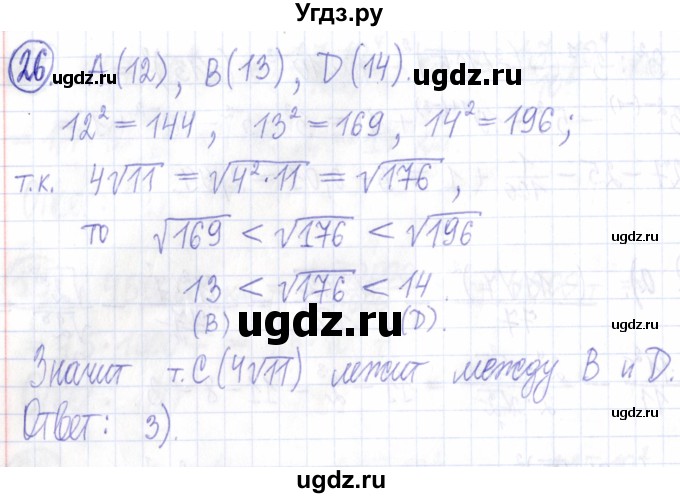 Угдз.ру
26. A(12), B(13), D(14).
ugdz.ru ugdz.ru
12² = 144, 13² = 169, 14² = 196;
т.к. 4√11 = √(4²·11) = √176,
ugdz.ru
то √169 < √176 < √196
ugdz.ru
13 < √176 < 14.
(B) (D).
ugdz.ru
Значит т. C(4√11) лежит между B и D.
Ответ: 3).
ugdz.ru
ugdz.ru